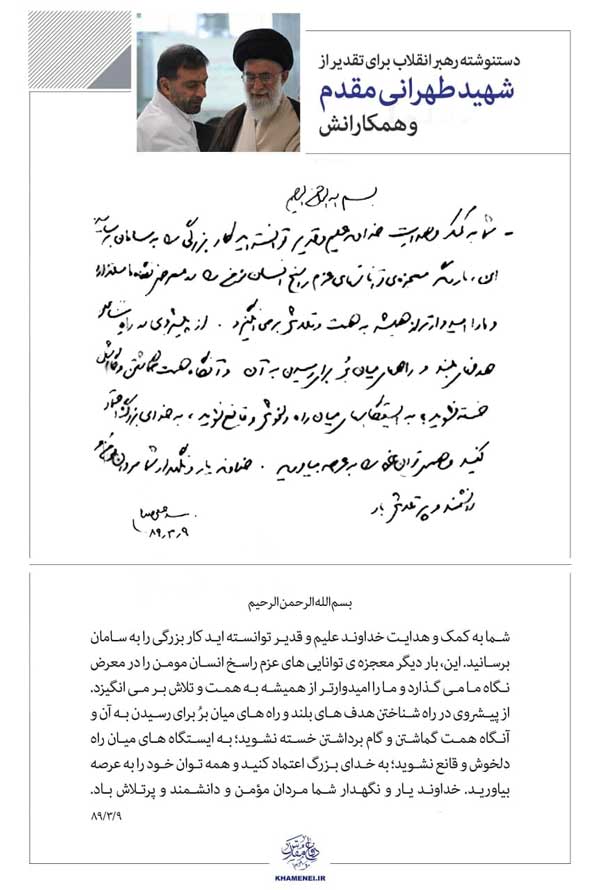 دستنوشته رهبر انقلاب برای تقدیر از
شهید طهرانی مقدم
و همکارانش
بسم الله الرحمن الرحیم
- شما به کمک و هدایت خداوند علیم و قدیر توانسته‌اید کار بزرگی را به سامان برسانید
این، بار دیگر معجزه‌ی توانائیهای عزم راسخ انسان مؤمن را در معرض نگاه ما میگذارد
و ما را امیدوارتر از همیشه به همت و تلاش برمی‌انگیزد. از پیشروی در راه شناختن
هدفهای بلند و راههای میان بُر برای رسیدن به آن و آنگاه همت گماشتن و گام برداشتن
خسته نشوید؛ به ایستگاههای میان راه دلخوش و قانع نشوید، به خدای بزرگ اعتماد
کنید و همه توان خود را به عرصه بیاورید. خداوند یار و نگهدار شما مردان مؤمن و
دانشمند و پر تلاش باد
سید علی خامنه‌ای
۸۹٫۳٫۹
بسم الله الرحمن الرحیم
شما به کمک و هدایت خداوند علیم و قدیر توانسته اید کار بزرگی را به سامان
برسانید. این، بار دیگر معجزه ی توانایی های عزم راسخ انسان مومن را در معرض
نگاه ما می گذارد و ما را امیدوارتر از همیشه به همت و تلاش بر می انگیزد.
از پیشروی در راه شناختن هدف های بلند و راه های میان بُر برای رسیدن به آن و
آنگاه همت گماشتن و گام برداشتن خسته نشوید؛ به ایستگاه های میان راه
دلخوش و قانع نشوید؛ به خدای بزرگ اعتماد کنید و همه توان خود را به عرصه
بیاورید. خداوند یار و نگهدار شما مردان مؤمن و دانشمند و پرتلاش باد.
۸۹/۳/۹
KHAMENEI.IR